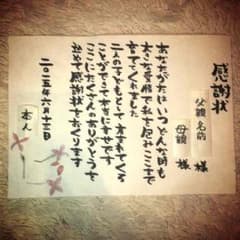 感謝状
父親 名前 様
母親 様
あなたがたはいつどんな時も
大きな愛情で私を包みここまで
育ててくれました
二人の子どもとして生まれてくる
ことができて本当に幸せです
ここにたくさんのありがとうを
込めて感謝状をおくります
二〇一五年六月十三日
本人